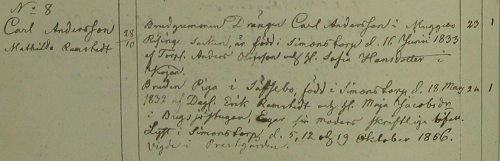 No 8
Carl Andersson
Mathilda Ramstedt
28/10
Brudgummen Drängen Carl Andersson i
Socken, är född i Simonstorp d. 16 Junii 1833 23 1
af Torp. Anders Olofsson och h. Sofia Hansdotter i
Bruden Piga i född i Simonstorp d. 18 May 24 1
1832 af Dagl. Erik Ramstedt och h. Maja Jacobsdr
i Eger sin moders skriftliga
Lyst i Simonstorp d. 5, 12 och 19 Oktober 1856.
Vigde i Prestgården.